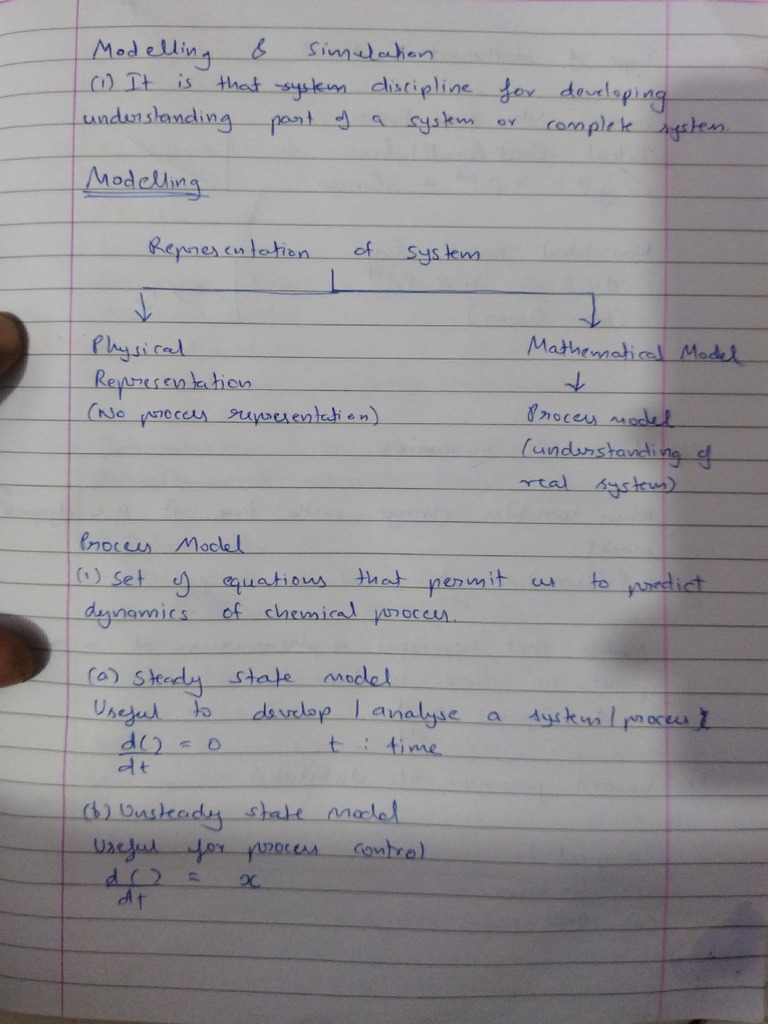 Modelling & Simulation
(1) It is that system discipline for developing
understanding part of a system or complete system.
Modelling
Representation of system
Physical Mathematical Model
Representation
(No process representation) Process model
(understanding of
real system)
Process Model
(1) Set of equations that permit us to predict
dynamics of chemical process.
(a) Steady state model
Useful to develop / analyse a system / process
d( )/dt = 0 t : time
(b) Unsteady state model
Useful for process control
d( )/dt = x